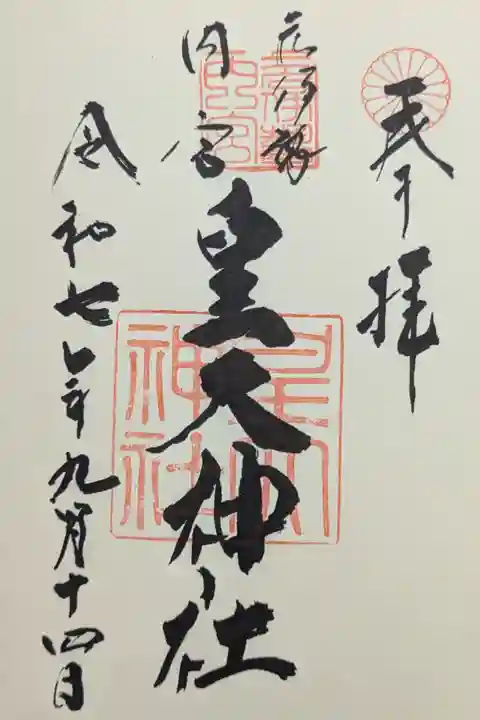 奉拝
元伊勢
内宮
皇大神社
令和七年九月十四日
皇大神社